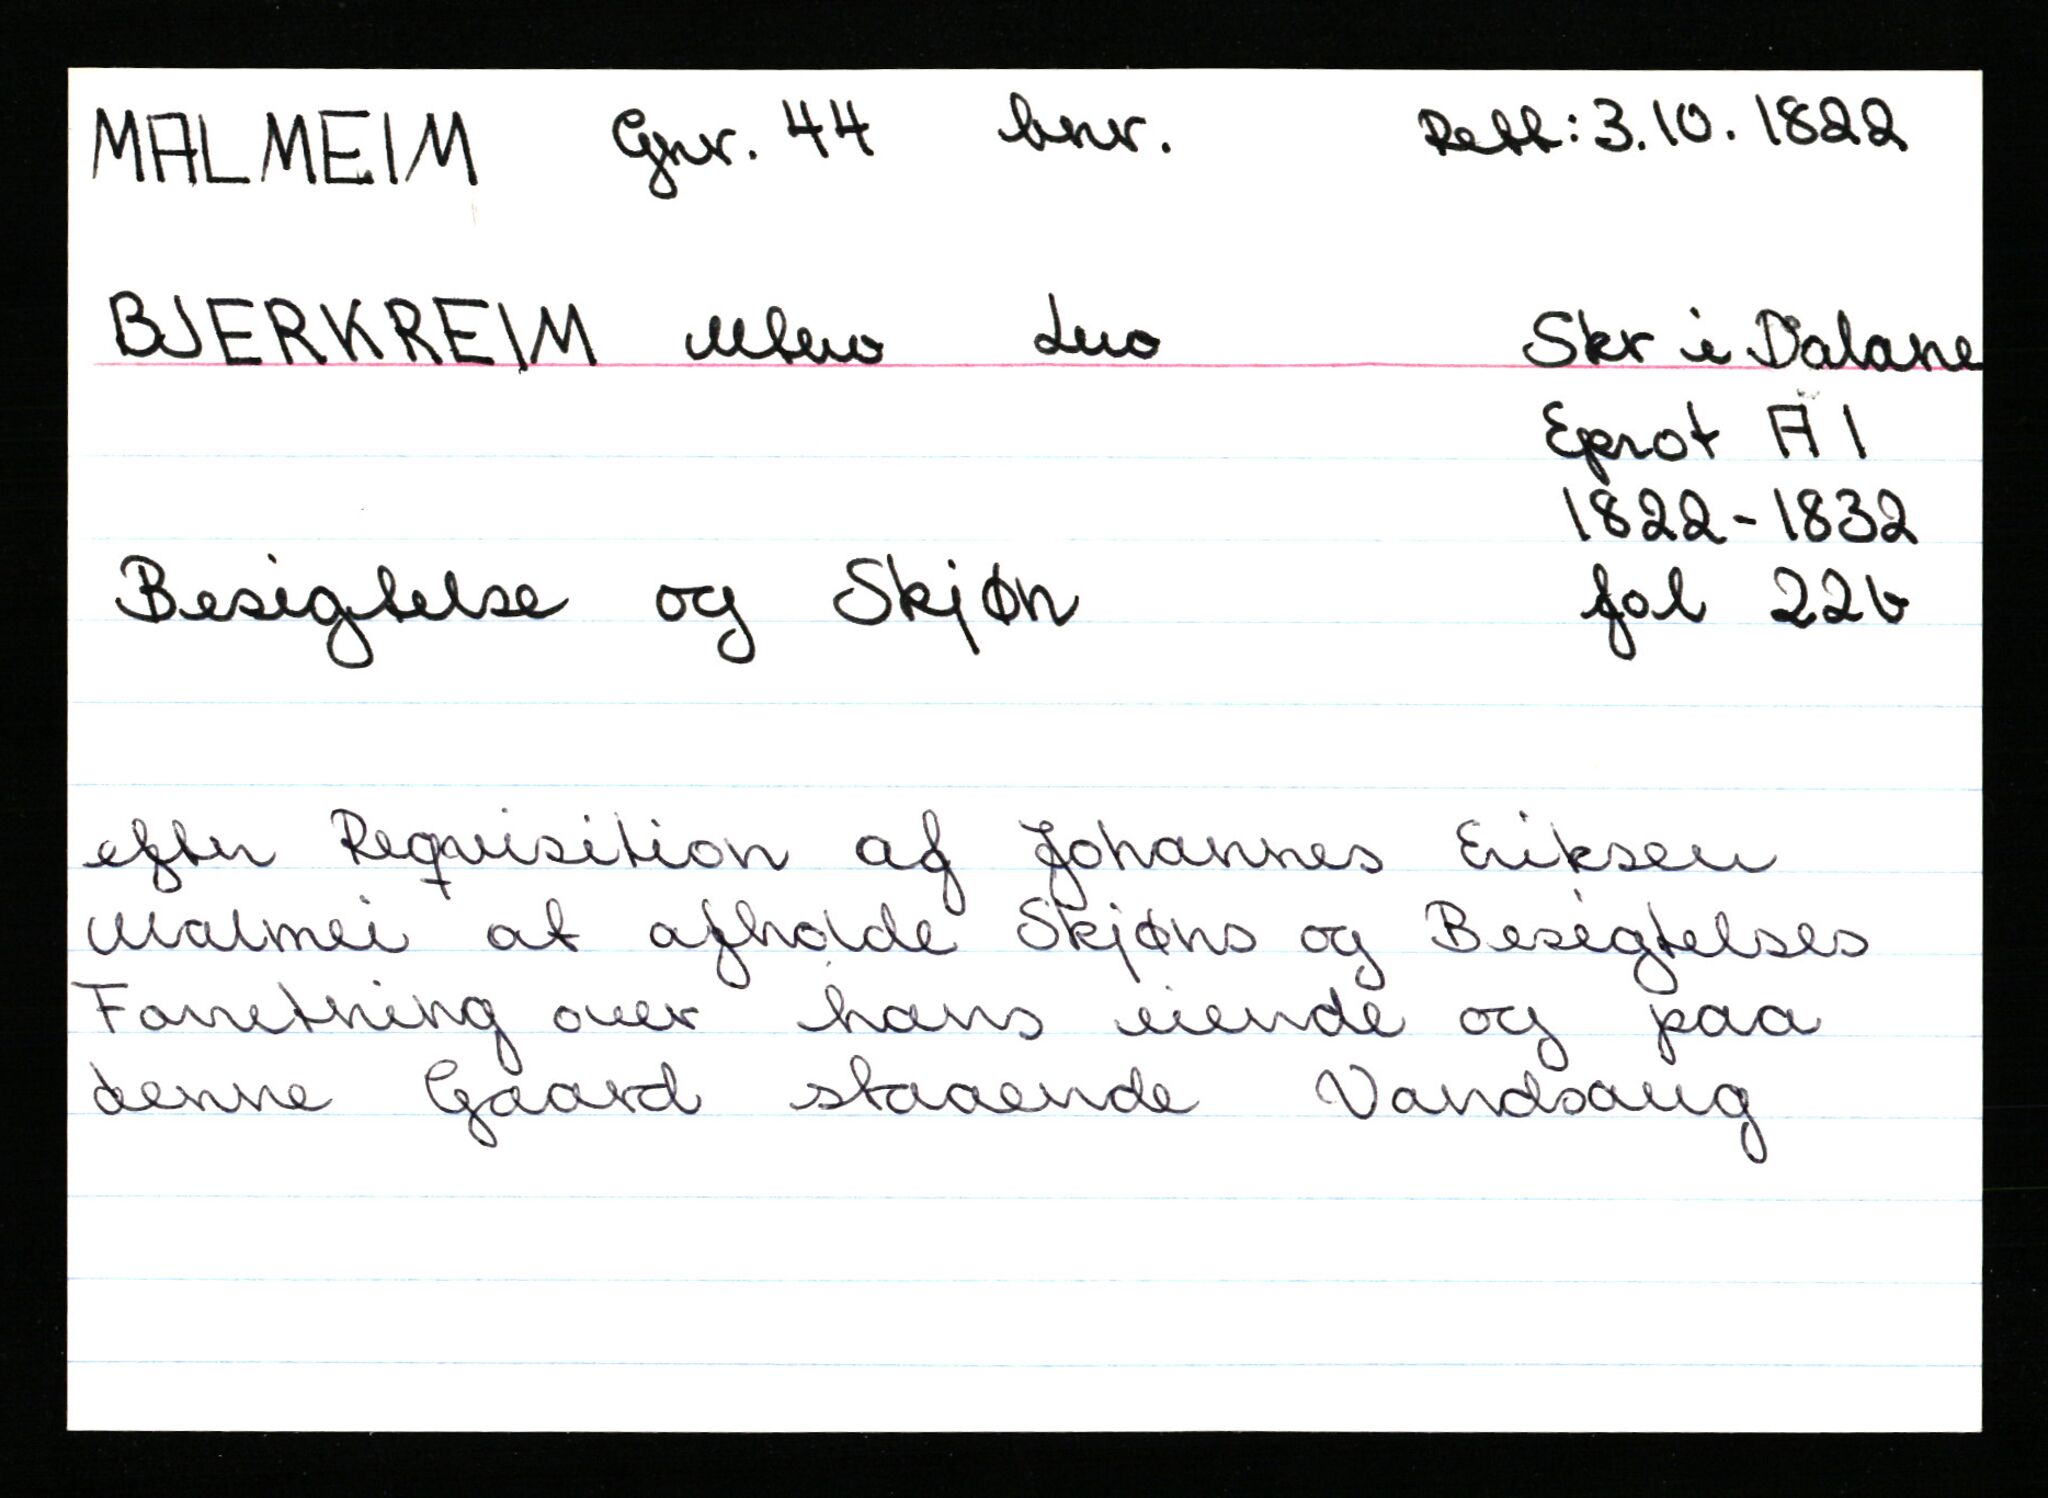 MALMEIM Gnr. 44 bnr. Rett: 3.10.1822
BJERKREIM Mtno Lno Skr i Dalane
Eprot A 1
1822-1832
Besigtelse og Skjøn fol 22b
efter Requisition af Johannes Eriksen
Malmei at afholde Skjøns og Besigtelses
Forretning over hans eiende og paa
denne Gaard staaende Vandsaug